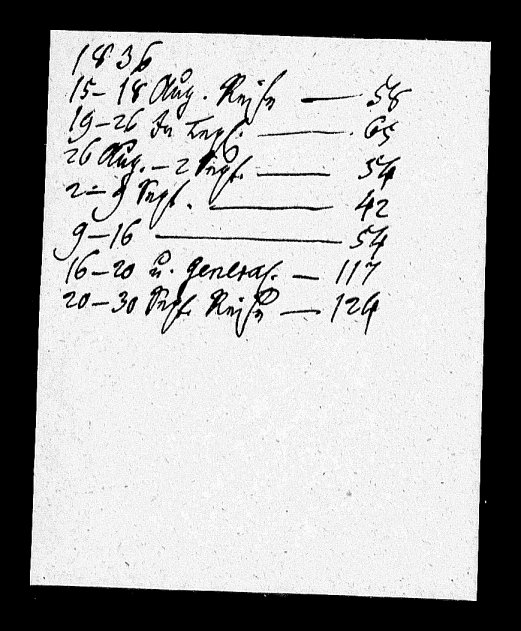 1836
15–18 Aug. Reise — 58
19–26 In Tepl. — 65
26 Aug. – 2 Sept. — 54
2–9 Sept. — 42
9–16 — 54
16–20 u. general. — 117
20–30 Sept. Reise — 124